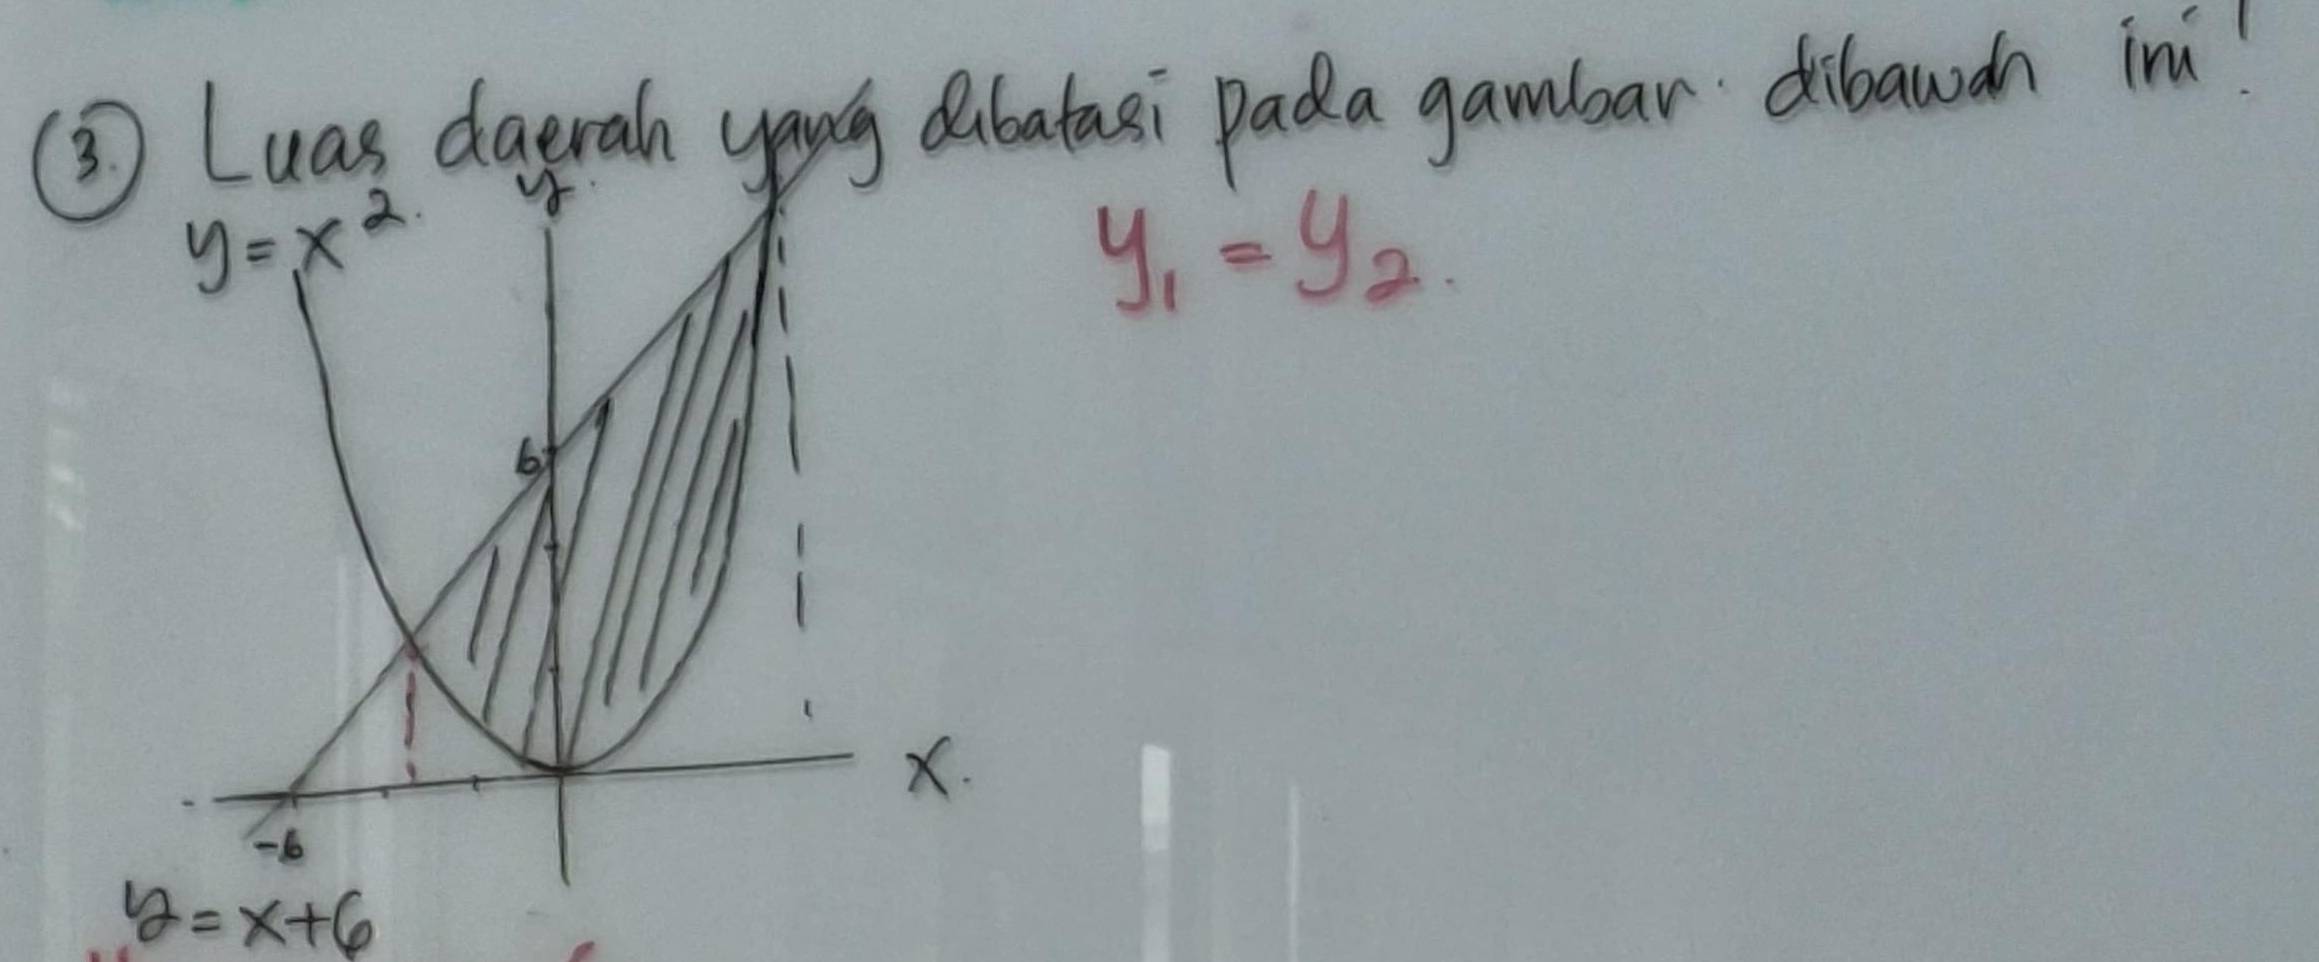 3. Luas daerah yang dibatasi pada gambar dibawah ini!
y = x².
y
y₁ = y₂.
6
x.
-6
y = x+6